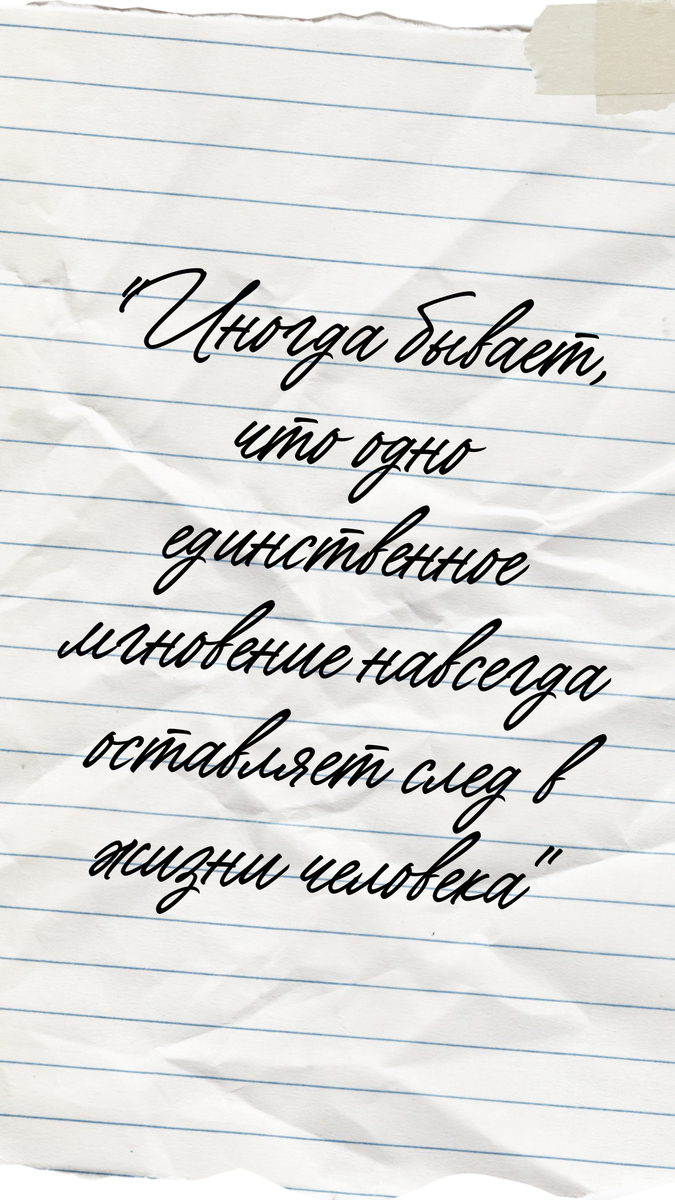 "Иногда бывает,
что одно
единственное
мгновение навсегда
оставляет след в
жизни человека"